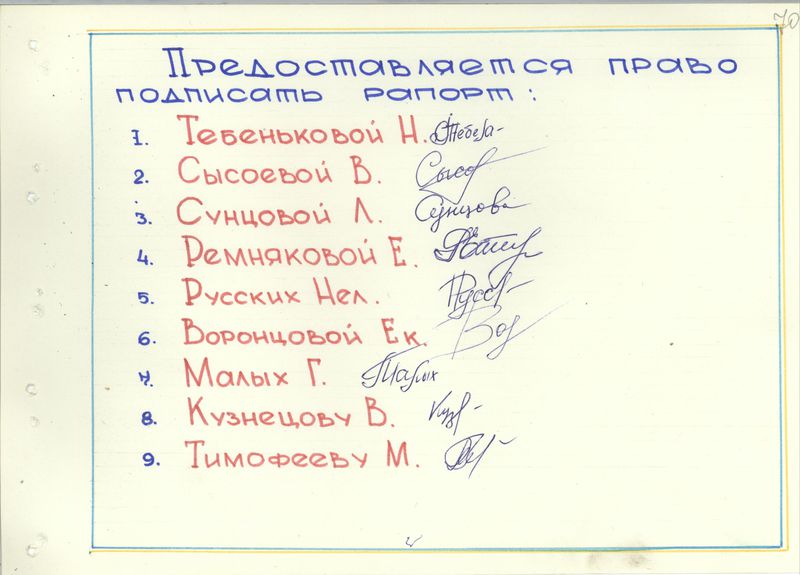 70
Предоставляется право
подписать рапорт:
1. Тебеньковой Н.
2. Сысоевой В.
3. Сунцовой Л. Сунцова
4. Ремняковой Е.
5. Русских Нел.
6. Воронцовой Ек.
7. Малых Г. Малых
8. Кузнецову В.
9. Тимофееву М.